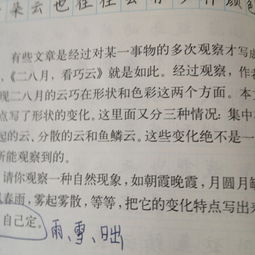 朵云也往往会有多种颜色
有些文章是经过对某一事物的多次观察才写成
,《二八月,看巧云》就是如此。经过观察,作者
现二八月的云巧在形状和色彩这两个方面。本文
点写了形状的变化。这里面又分三种情况:集中在
起的云、分散的云和鱼鳞云。这些变化绝不是一
所能观察到的。
请你观察一种自然现象,如朝霞晚霞,月圆月缺
春雨,雾起雾散,等等,把它的变化特点写出来
自己定。 雨、雪、日出